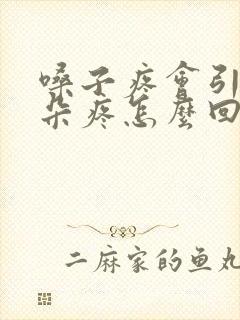 嗓子疼會引
朵疼怎麼回
二麻家的鱼丸